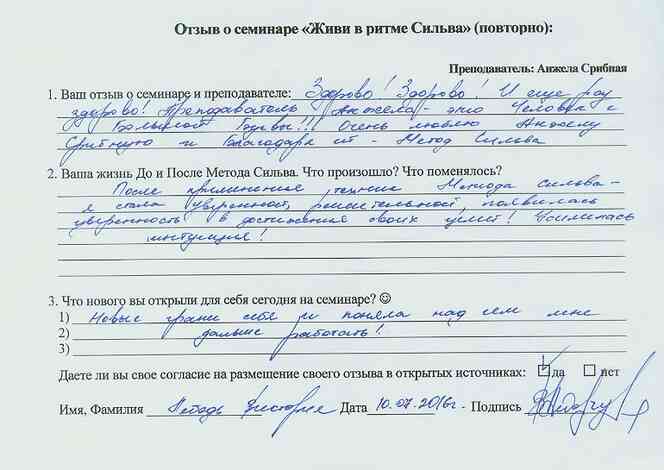 Отзыв о семинаре «Живи в ритме Сильва» (повторно):
Преподаватель: Анжела Срибная
1. Ваш отзыв о семинаре и преподавателе: Здорово! Здорово! И еще раз
здорово! Преподаватель Анжела - это Человек с
Большой Буквы!!! Очень люблю Анжелу
Срибную и Благодаря ей - Метод Силова
2. Ваша жизнь До и После Метода Сильва. Что произошло? Что поменялось?
После применение техник Метода Силова -
я стала уверенной, решительной, появилась
уверенность в достижения своих целей! Усилилась
интуиция!
3. Что нового вы открыли для себя сегодня на семинаре? ☺
1) Новые грани себя и поняла над чем мне
2) дальше работать!
3)
Даете ли вы свое согласие на размещение своего отзыва в открытых источниках: ☑ да ☐ нет
Имя, Фамилия Виктория Дата 10.07.2016г. Подпись